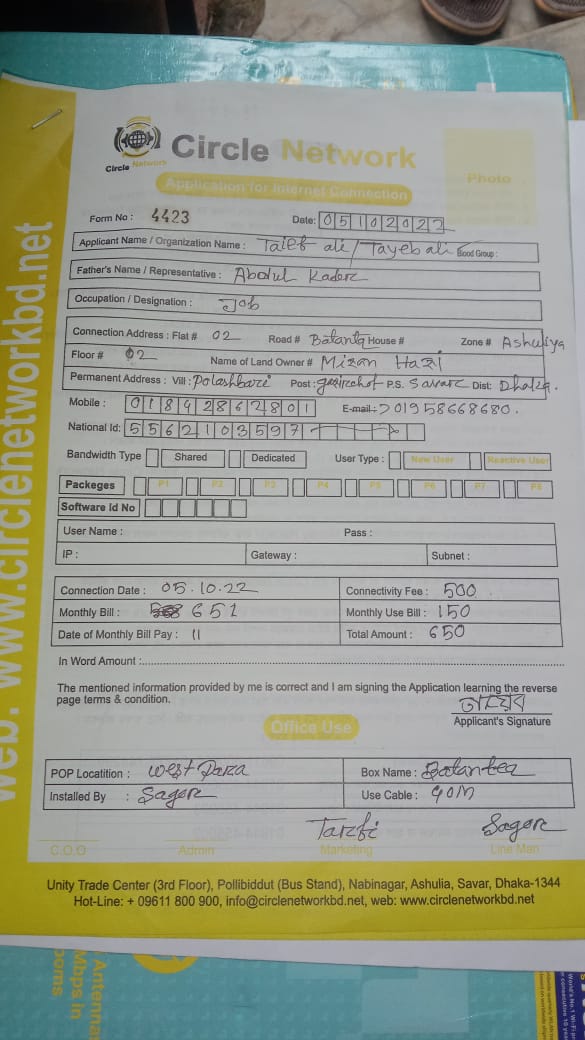 Circle Network
Circle Network
Application for Internet Connection
Photo
Form No : 4423
Date: 05102022
Applicant Name / Organization Name : Taieb ali / Tayeb ali Blood Group :
Father's Name / Representative : Abdul Kader
Occupation / Designation : Job
Connection Address : Flat # 02 Road # House # Zone # Ashuliya
Floor # 02 Name of Land Owner # Mizan Hazi
Permanent Address : Vill : Polashbari Post : P.S. Savar Dist: Dhaka.
Mobile : 01842862801 E-mail :- 01958668680.
National Id: 5562103597
Bandwidth Type Shared Dedicated User Type : New User Reactive User
Packeges P1 P2 P3 P4 P5 P6 P7 P8
Software Id No
User Name : Pass :
IP : Gateway : Subnet :
Connection Date : 05.10.22 Connectivity Fee : 500
Monthly Bill : 651 Monthly Use Bill : 150
Date of Monthly Bill Pay : 11 Total Amount : 650
In Word Amount :
The mentioned information provided by me is correct and I am signing the Application learning the reverse
page terms & condition.
তায়েব
Applicant's Signature
Office Use
POP Locatition : West Para Box Name :
Installed By : Sagor Use Cable : 90M
Sagor
C.O.O Admin Marketing Line Man
Unity Trade Center (3rd Floor), Pollibiddut (Bus Stand), Nabinagar, Ashulia, Savar, Dhaka-1344
Hot-Line: + 09611 800 900, info@circlenetworkbd.net, web: www.circlenetworkbd.net
web: www.circlenetworkbd.net
Antenna
Mbps in